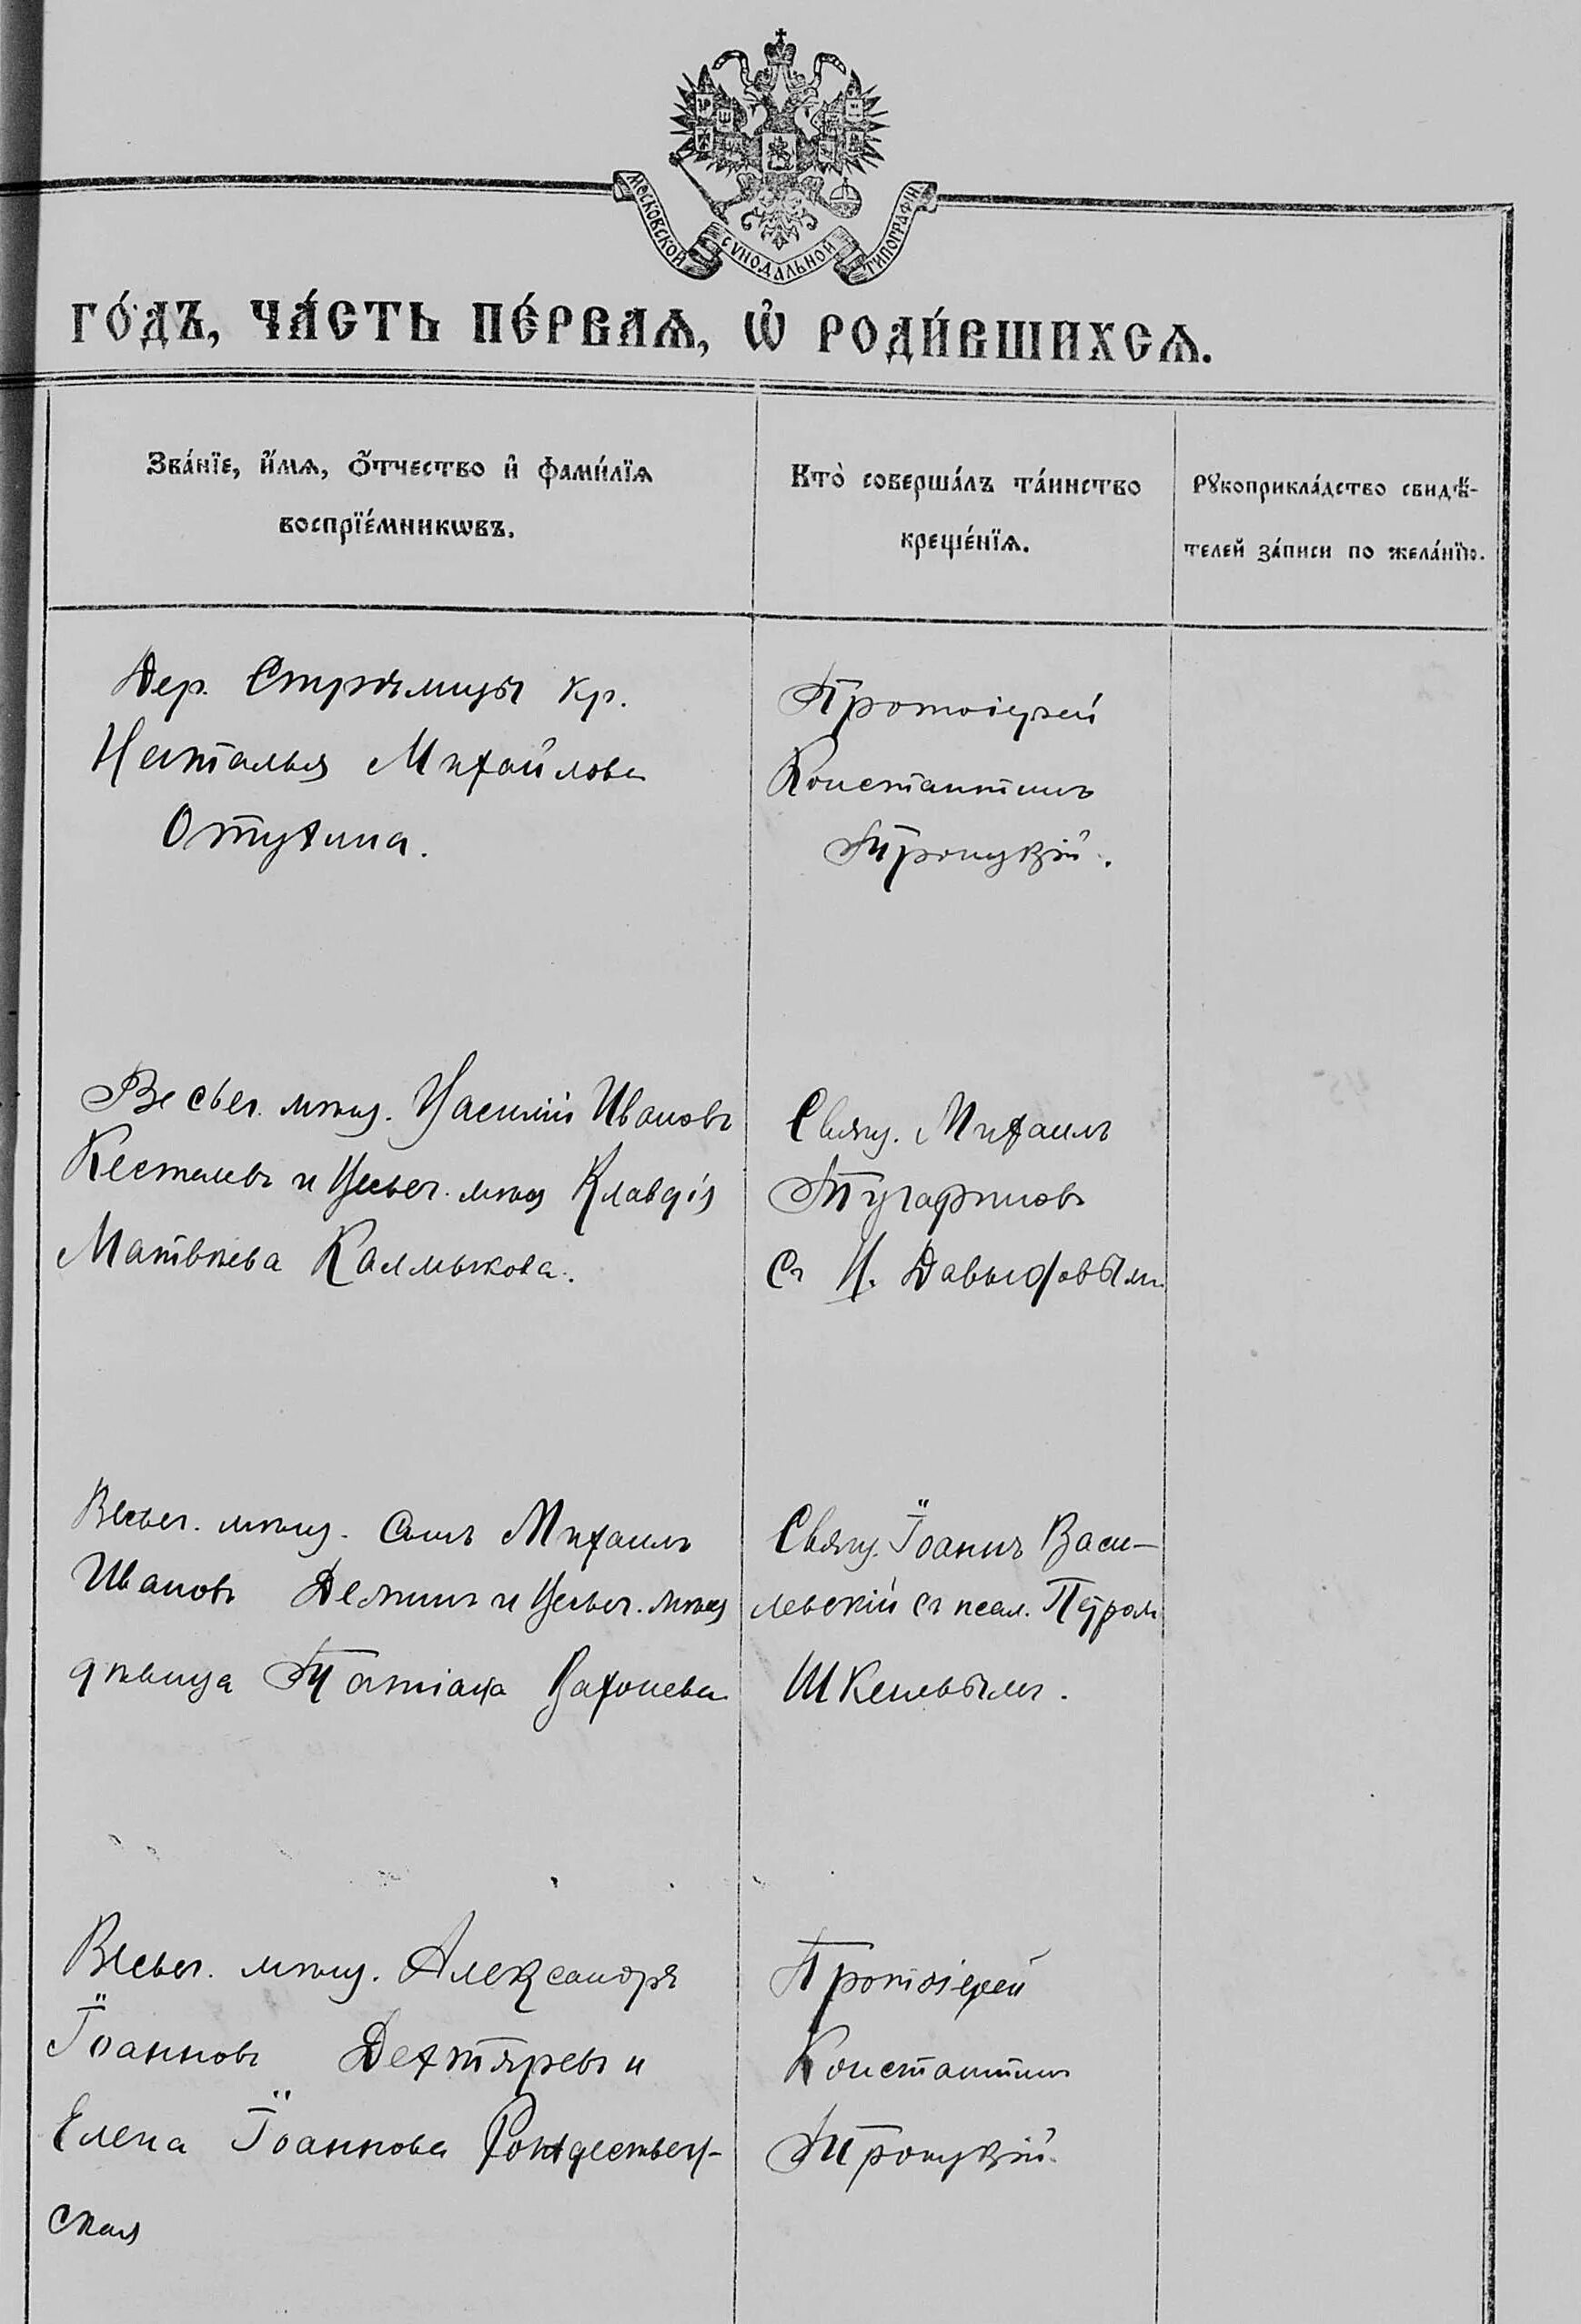 МОСКОВСКОЙ СѴНОДАЛЬНОЙ ТИПОГРАФІИ
ГО́ДЪ, ЧА́СТЬ ПЕ́РВАѦ, Ѡ҆ РОДИ́ВШИХСѦ.
Зва́нїе, и҆́мѧ, ѻ҆́тчество и҆ фами́лїѧ
воспрїе́мникѡвъ.
Кто̀ соверша́лъ та́инство
креще́нїѧ.
Рꙋкоприкла́дство свидѣ́-
телей за́писи по жела́нїю.
Дер. кр.
Наталья Михайлова
Отухина.
Протоіерей
Константинъ
Троицкій.
Весьег. мѣщ. Василій Ивановъ
и Весьег. мѣщ Клавдія
Матвѣева Калмыкова.
Свящ. Михаилъ
Тугариновъ
съ И. Давыдовымъ
Весьег. мѣщ. сынъ Михаилъ
Ивановъ Деминъ и Весьег. мѣщ
дѣвица Татіана
Свящ. Іоаннъ Васи-
левскій съ псал. Петромъ
Весьег. мѣщ. Александръ
Іоанновъ Дехтяревъ и
Елена Іоаннова Рождествен-
ская
Протоіерей
Константинъ
Троицкій.